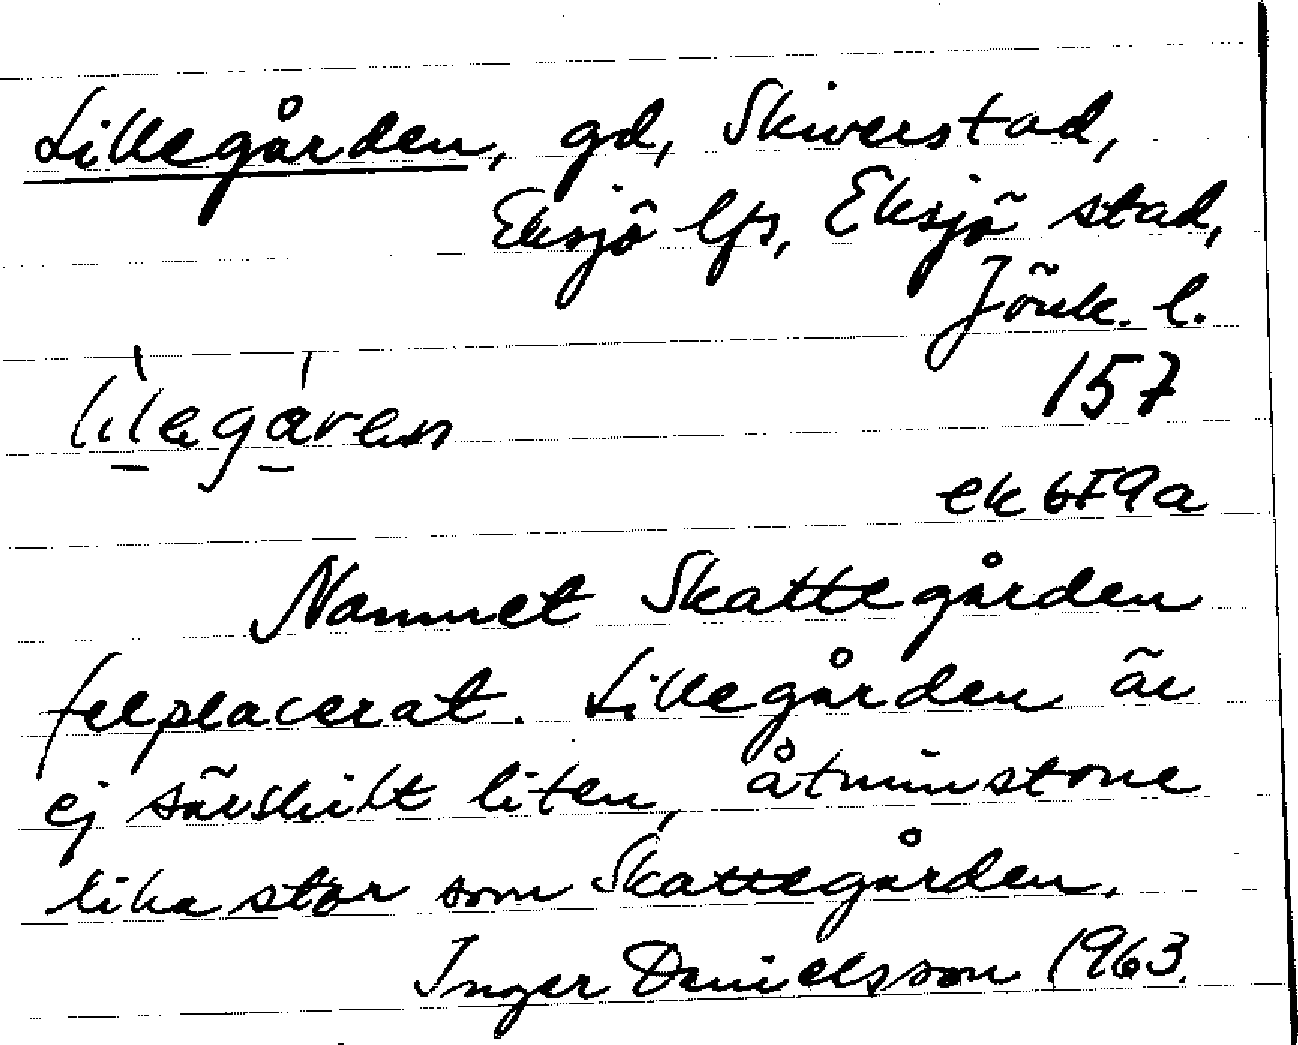 Lillegården, gd, Skiverstad,
Eksjö lfs, Eksjö stad,
Jönk. l.
lìlegáren
157
ek 6F9a
Namnet Skattegården
felplacerat. Lillegården är
ej särskilt liten, åtminstone
lika stor som Skattegården.
Inger Danielsson 1963.